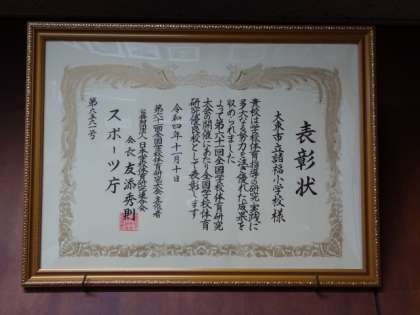 表彰状
大東市立諸福小学校様
貴校は学校体育指導の研究実践に
多大なる努力を注ぎ優れた成果を
収められました
よって第六十一回全国学校体育研究
大会の開催にあたり全国学校体育
研究優良校として表彰します
令和四年十一月十日
第六十一回全国学校体育研究大会主催者
公益財団法人 日本学校体育研究連合会
会長 友添秀則
スポーツ庁